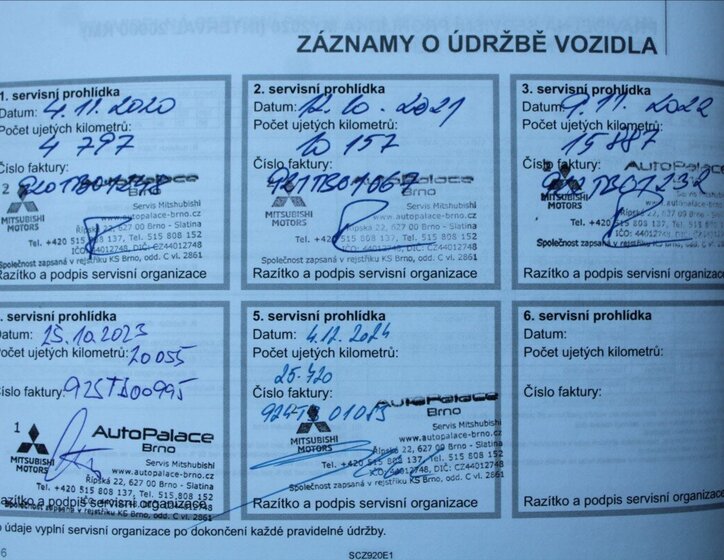 ZÁZNAMY O ÚDRŽBĚ VOZIDLA
1. servisní prohlídka
Datum: 4.11.2020
Počet ujetých kilometrů:
4 797
Číslo faktury:
AutoPalace
Brno
MITSUBISHI
MOTORS
Servis Mitshubishi
www.autopalace-brno.cz
Řípská 22, 627 00 Brno - Slatina
Tel. +420 515 808 137, Tel. 515 808 152
IČO: 44012748, DIČ: CZ44012748
Společnost zapsaná v rejstříku KS Brno, odd. C vl. 2861
Razítko a podpis servisní organizace
2. servisní prohlídka
Datum: 12.10.2021
Počet ujetých kilometrů:
10 157
Číslo faktury:
921TB01067
AutoPalace
Brno
MITSUBISHI
MOTORS
Servis Mitshubishi
www.autopalace-brno.cz
Řípská 22, 627 00 Brno - Slatina
Tel. +420 515 808 137, Tel. 515 808 152
IČO: 44012748, DIČ: CZ44012748
Společnost zapsaná v rejstříku KS Brno, odd. C vl. 2861
Razítko a podpis servisní organizace
3. servisní prohlídka
Datum: 9.11.2022
Počet ujetých kilometrů:
15 887
Číslo faktury:
AutoPalace
Brno
MITSUBISHI
MOTORS
Servis Mits
www.autopalace-
Řípská 22, 627 00 Brno
Tel. +420 515 808 137, Tel. 515 8
IČO: 44012748, DIČ: CZ440
Společnost zapsaná v rejstříku KS Brno, odd. C
Razítko a podpis servisní organizace
. servisní prohlídka
Datum: 25.10.2023
Počet ujetých kilometrů: 20 055
Číslo faktury:
1
AutoPalace
Brno
MITSUBISHI
MOTORS
Servis Mitshubishi
www.autopalace-brno.cz
Řípská 22, 627 00 Brno - Slatina
Tel. +420 515 808 137, Tel. 515 808 152
IČO: 44012748, DIČ: CZ44012748
Společnost zapsaná v rejstříku KS Brno, odd. C vl. 2861
Razítko a podpis servisní organizace
5. servisní prohlídka
Datum: 4.12.2024
Počet ujetých kilometrů:
25 720
Číslo faktury:
924TB01083
AutoPalace
Brno
MITSUBISHI
MOTORS
Servis Mitshubishi
www.autopalace-brno.cz
Řípská 22, 627 00 Brno - Slatina
Tel. +420 515 808 137, Tel. 515 808 152
IČO: 44012748, DIČ: CZ44012748
Společnost zapsaná v rejstříku KS Brno, odd. C vl. 2861
Razítko a podpis servisní organizace
6. servisní prohlídka
Datum:
Počet ujetých kilometrů:
Číslo faktury:
Razítko a podpis servisní organizace
o údaje vyplní servisní organizace po dokončení každé pravidelné údržby.
6
SCZ920E1